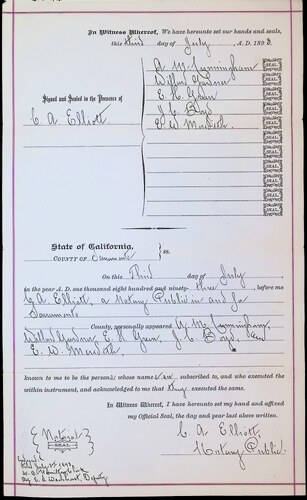 In Witness Whereof, We have hereunto set our hands and seals,
this third day of July, A. D. 1893.
Signed and Sealed in the Presence of
C A Elliott
A M Cunningham
Willard Gardner
E K Green
J C Boyd
E W Maslin
SEAL
SEAL
SEAL
SEAL
SEAL
SEAL
SEAL
SEAL
SEAL
SEAL
State of California,
COUNTY OF Sacramento } ss.
On this Third day of July
in the year A. D. one thousand eight hundred and ninety-three, before me
C A Elliott, a Notary Public in and for
Sacramento
County, personally appeared A M Cunningham,
Willard Gardner, E K Green, J C Boyd, and
E W
known to me to be the persons whose names are subscribed to, and who executed the
within instrument, and acknowledged to me that they executed the same.
In Witness Whereof, I have hereunto set my hand and affixed
my Official Seal, the day and year last above written.
C A Elliott,
Notary Public.
Notarial
SEAL
Deputy